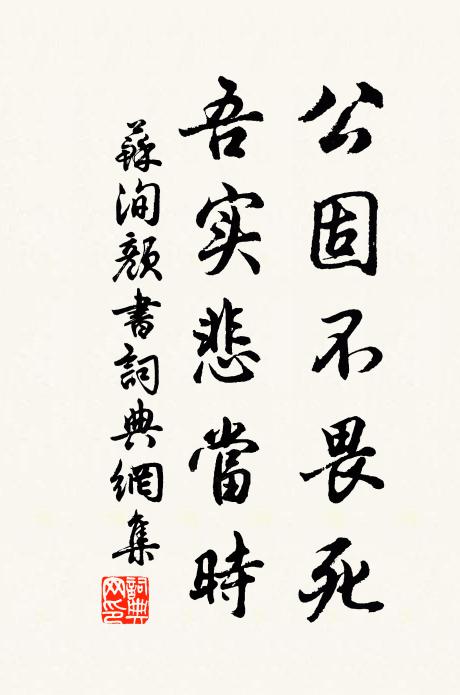 公固不畏死
吾实悲當時
蘇洵顏書詞典網集
詞典网印